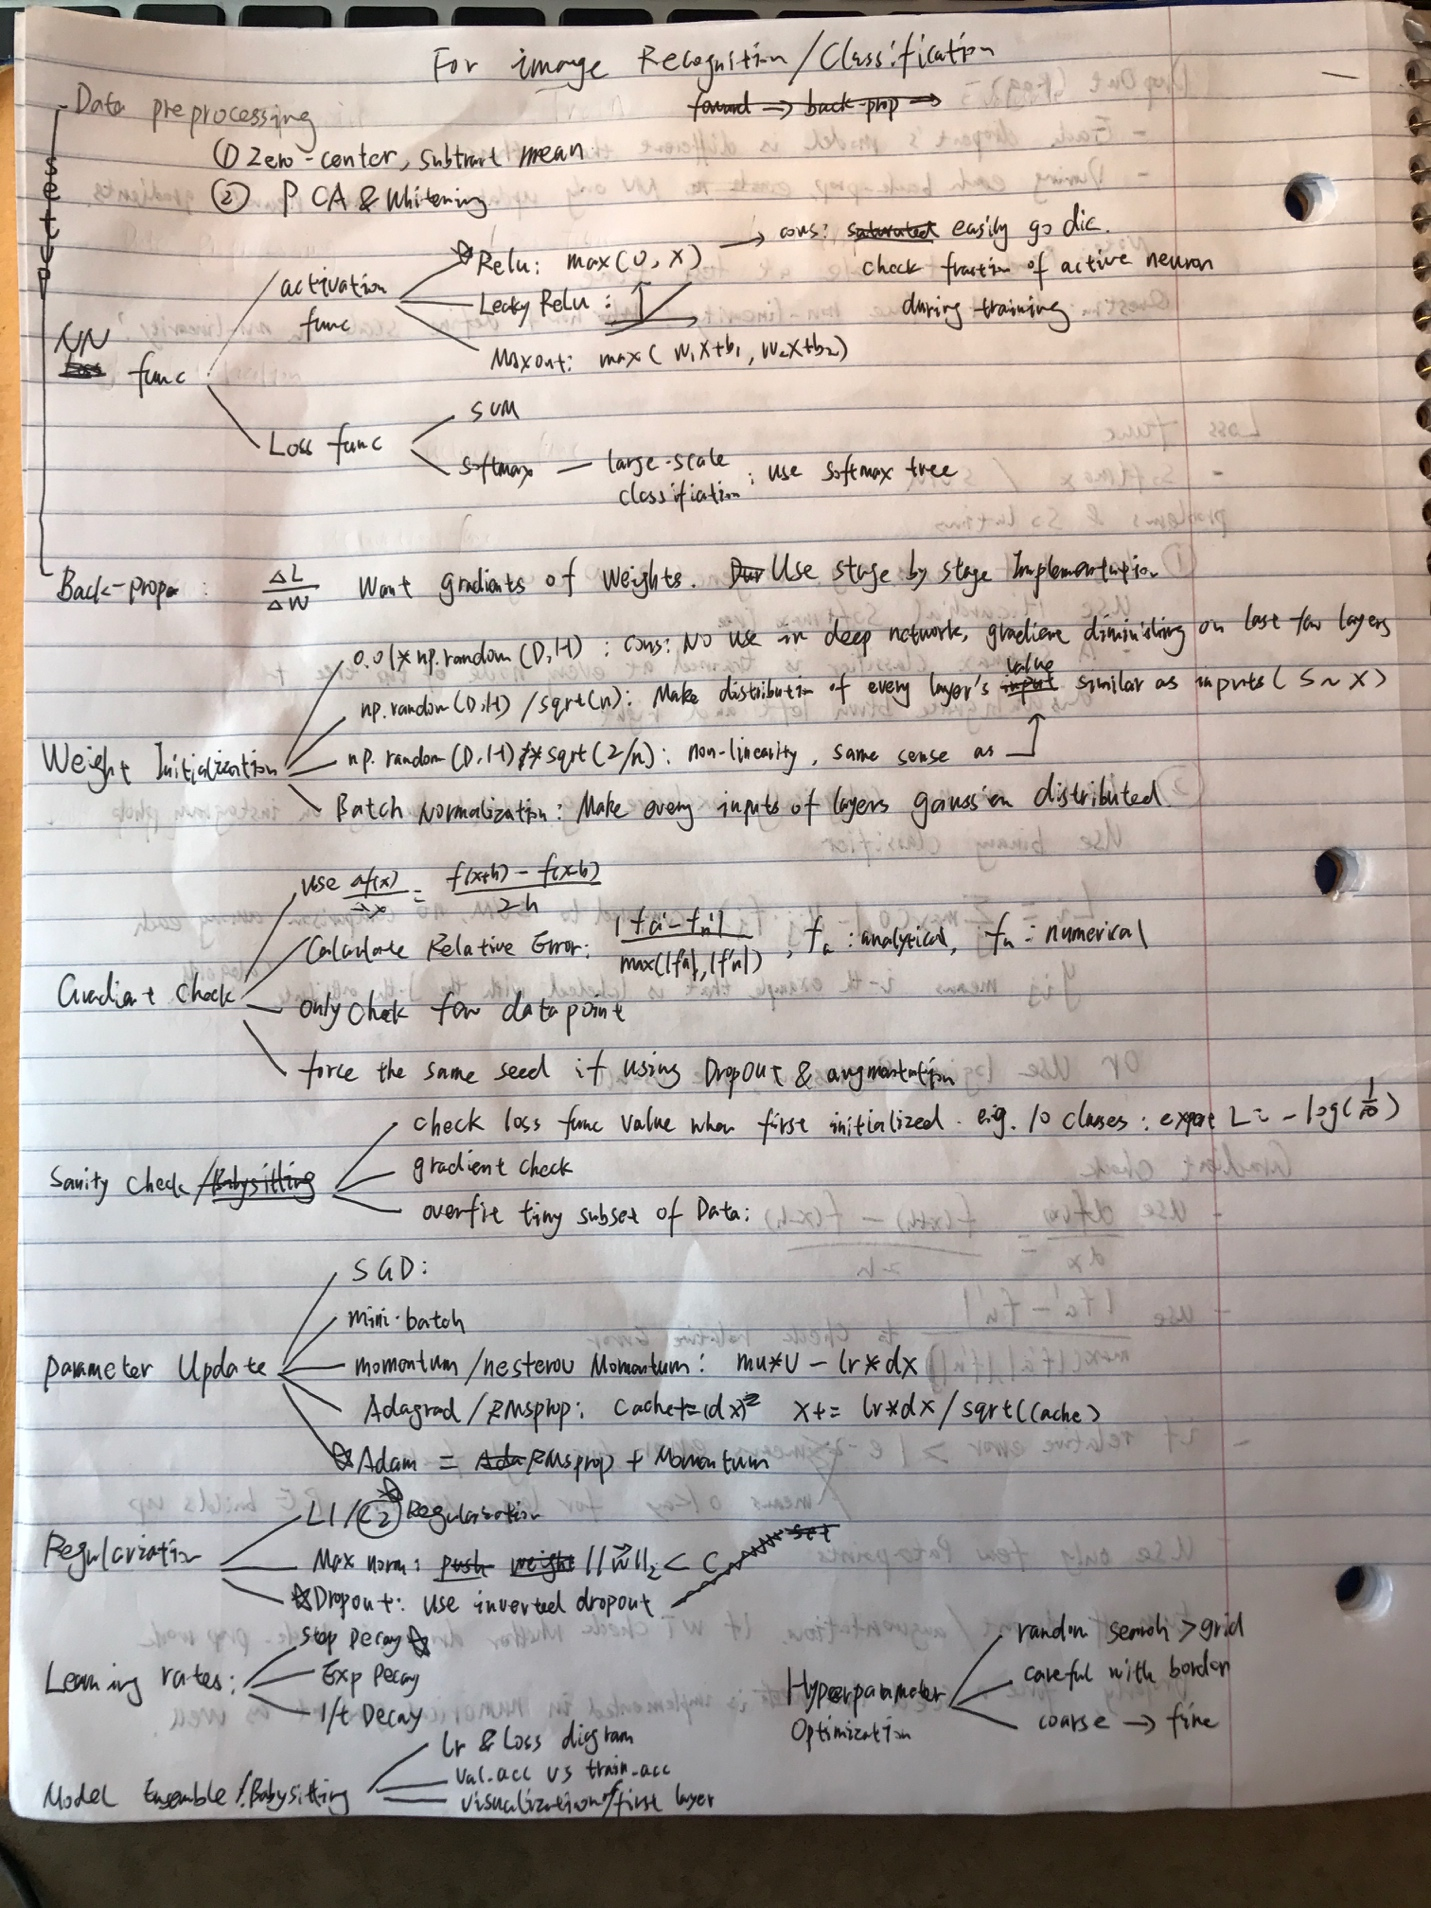 For image Recognition/Classification
forward => back-prop =>
Data preprocessing
① Zero-center, subtract mean
② PCA & Whitening
setup
NN func
activation func
Relu: max(0, X) → cons: saturated easily go die.
check fraction of active neuron
during training
Leaky Relu:
Maxout: max( W₁X+b₁, W₂X+b₂)
Loss func
SVM
softmax — large-scale classification: use softmax tree
Back-prop: ΔL/ΔW Want gradients of weights. Use stage by stage Implementation
Weight Initialization
0.01* np.random(D,H): cons: No use in deep network, gradient diminishing on last few layers
np.random(D,H) /sqrt(n): Make distribution of every layer's input value similar as inputs( S ~ X)
np.random(D,H) * sqrt(2/n): non-linearity, same sense as
Batch Normalization: Make every inputs of layers gaussian distributed
Gradient check
use df(x)/dx = f(x+h) - f(x-h)/2h
Calculate Relative Error: |fa'-fn'|/max(|f'a|,|f'n|), fa: analytical, fn: numerical
only check few datapoint
force the same seed if using DropOut & augmentation
Sanity check/Babysitting
check loss func value when first initialized. e.g. 10 classes: expect L= -log(1/10)
gradient check
overfit tiny subset of Data:
Parameter Update
SGD:
mini-batch
momentum/nesterov Momentum: mu*v - lr*dx
Adagrad/RMSprop: cache+=(dx)² x+= lr*dx/sqrt(cache)
Adam = Ada RMSprop + Momentum
Regularization
L1/L2 Regularization
Max norm: push weight ||w||₂ < C
Dropout: use inverted dropout
set
Learning rates:
Step Decay
Exp Decay
1/t Decay
Hyperparameter Optimization
random search > grid
careful with border
coarse → fine
Model Ensemble/Babysitting
lr & Loss diagram
val.acc vs train.acc
visualization of first layer